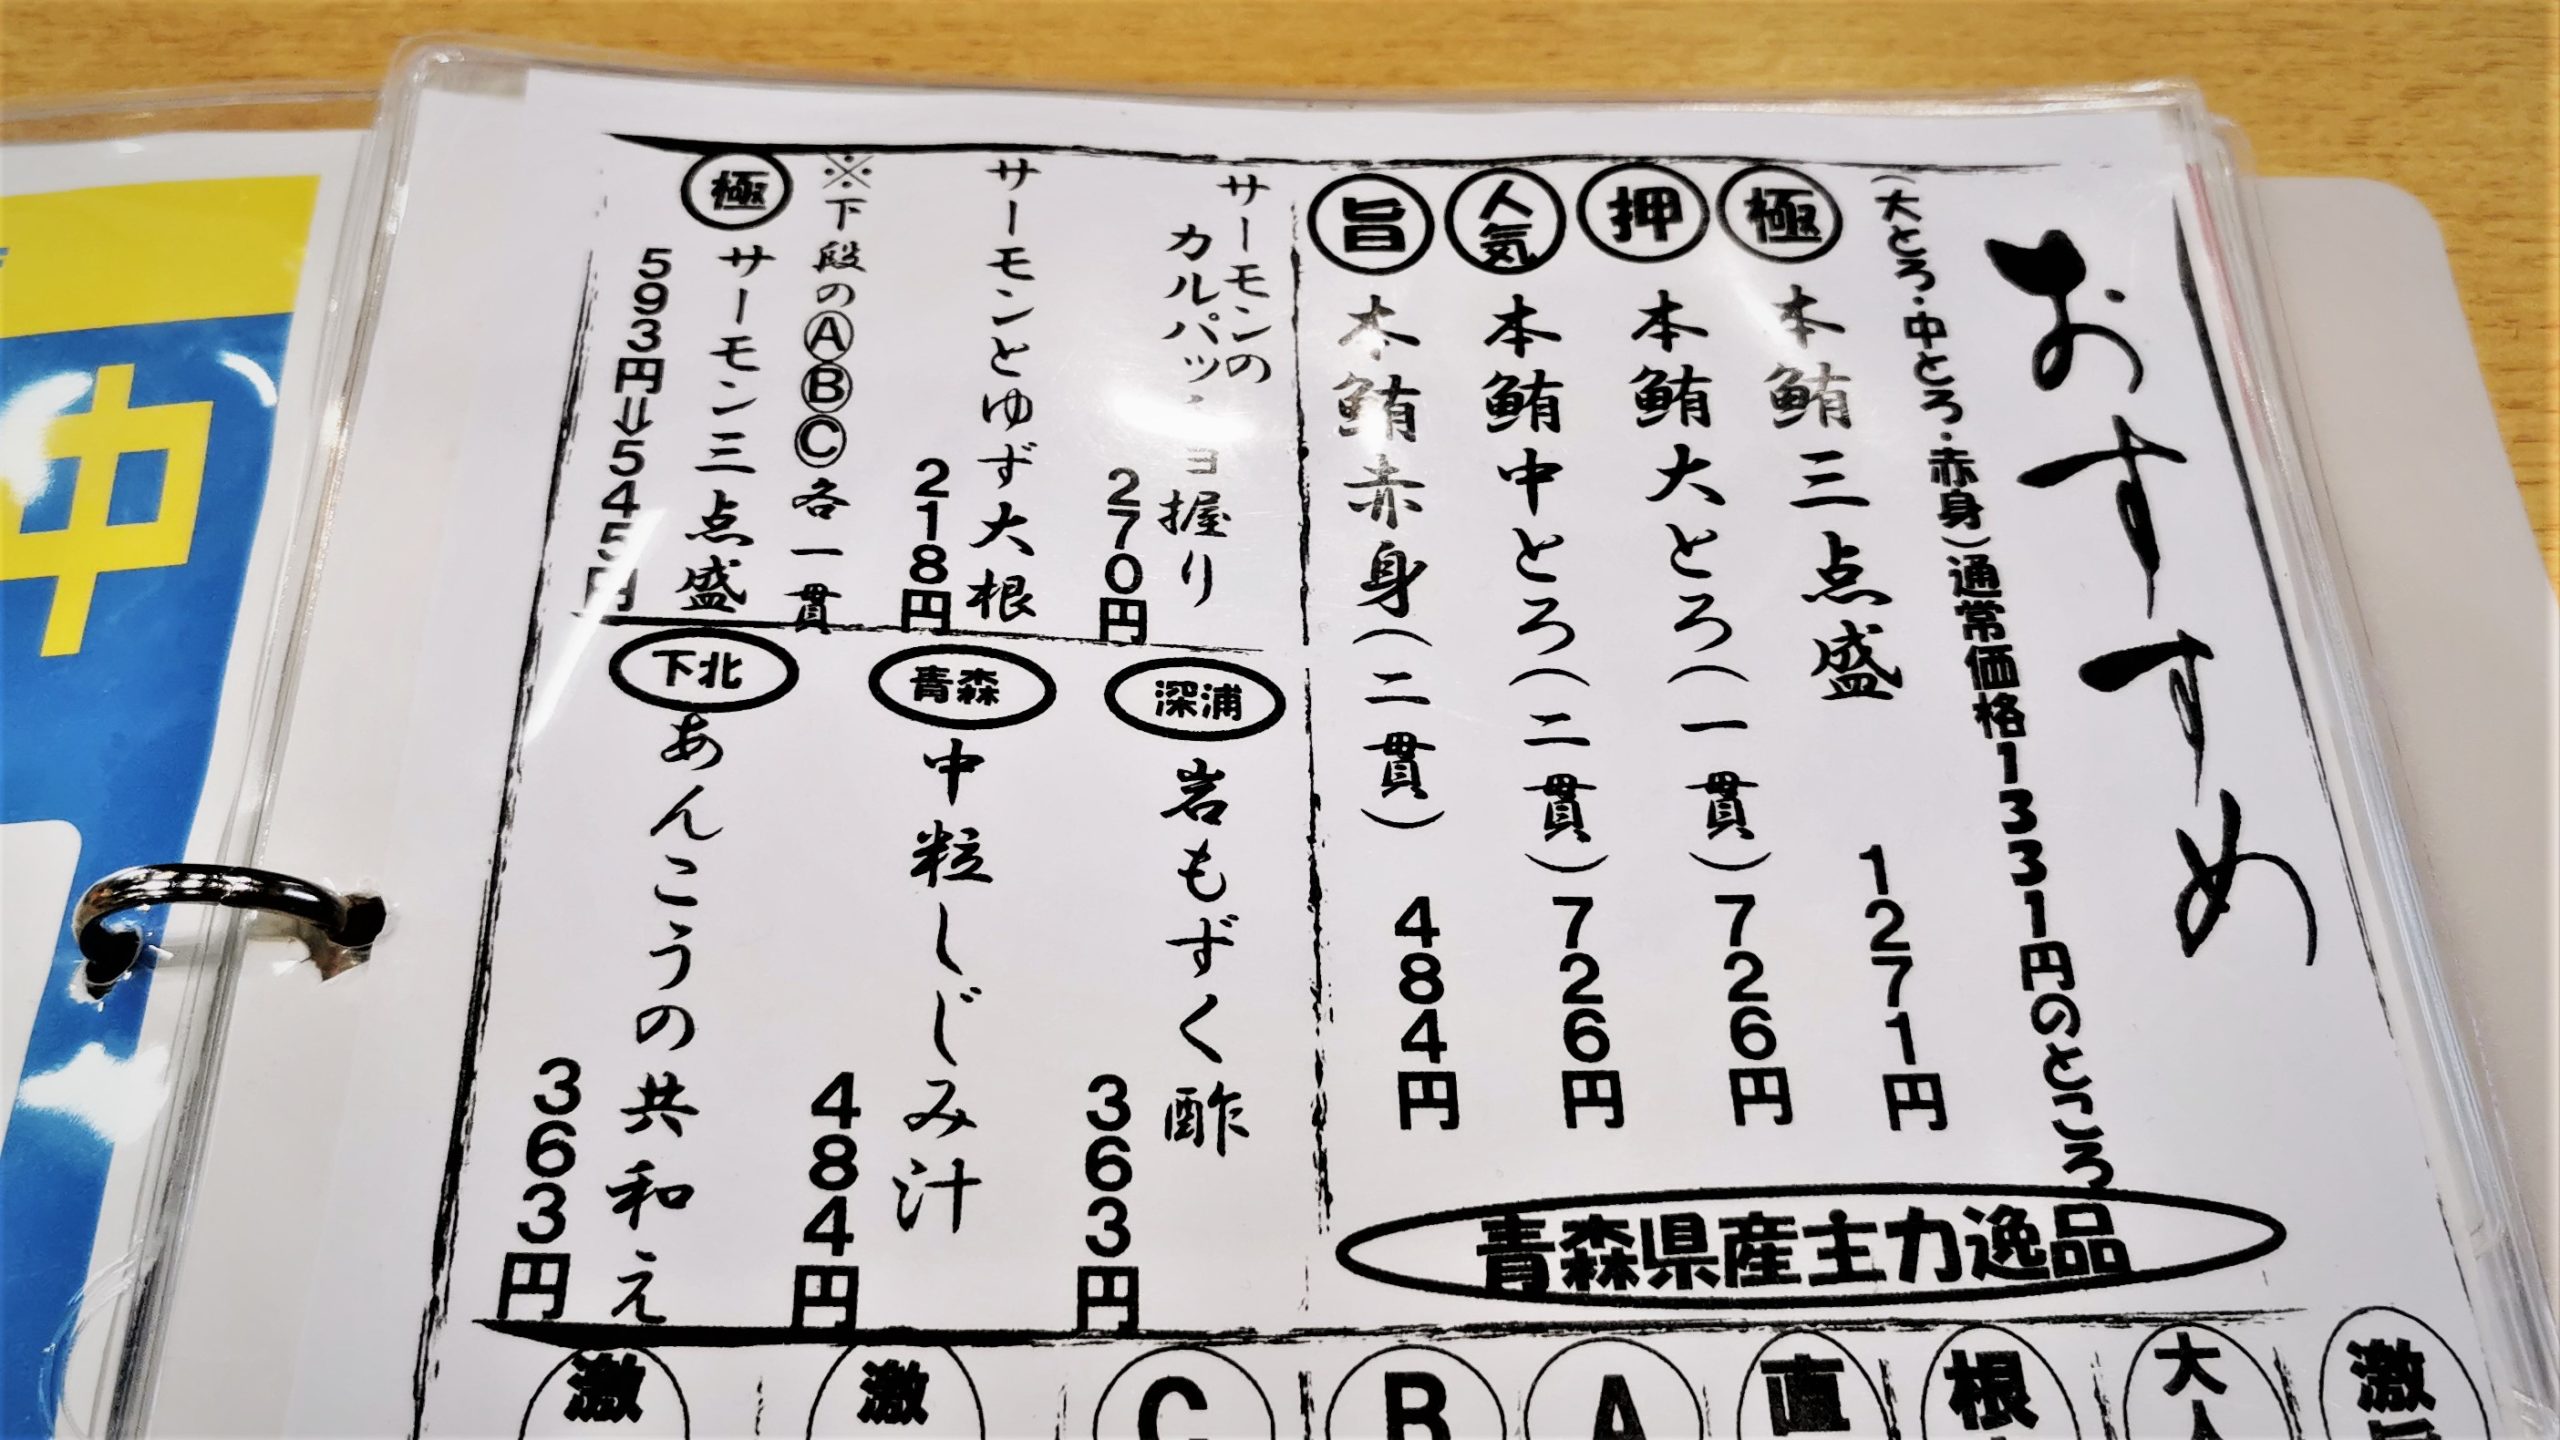 おすすめ
(大とろ・中とろ・赤身)通常価格1331円のところ
極 本鮪三点盛 1271円
押 本鮪大とろ(一貫)726円
人気 本鮪中とろ(二貫)726円
旨 本鮪赤身(二貫)484円
青森県産主力逸品
サーモンの
カルパッチョ握り
270円
サーモンとゆず大根
218円
※下段のⒶⒷⒸ各一貫
極 サーモン三点盛
593円⇒545円
深浦 岩もずく酢
363円
青森 中粒しじみ汁
484円
下北 あんこうの共和え
363円
激
大
根
直
A
B
C
激
激
中